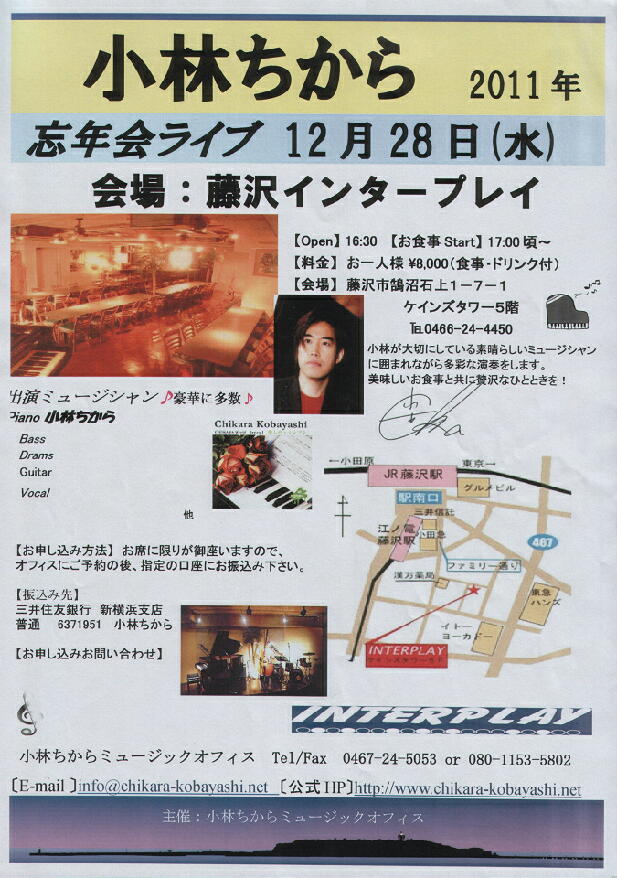 小林ちから 2011年
忘年会ライブ 12月28日(水)
会場：藤沢インタープレイ
【Open】16:30 【お食事Start】17:00頃～
【料金】 お一人様 ¥8,000(食事・ドリンク付)
【会場】 藤沢市鵠沼石上1－7－1
ケインズタワー5階
℡0466-24-4450
小林が大切にしている素晴らしいミュージシャン
に囲まれながら多彩な演奏をします。
美味しいお食事と共に贅沢なひとときを！
出演ミュージシャン♪豪華に多数♪
Piano 小林ちから
Bass
Drams
Guitar
Vocal
他
Chikara Kobayashi
【お申し込み方法】 お席に限りが御座いますので、
オフィスにご予約の後、指定の口座にお振込み下さい。
【振込み先】
三井住友銀行 新横浜支店
普通 6371951 小林ちから
【お申し込みお問い合わせ】
←小田原
JR藤沢駅
東京→
グルメビル
駅南口
三井信託
江ノ電
藤沢駅
小田急
467
ファミリー通り
漢方薬局
東急
ハンズ
イトー
ヨーカドー
INTERPLAY
ケインズタワー5F
INTERPLAY
小林ちからミュージックオフィス Tel/Fax 0467-24-5053 or 080-1153-5802
［E-mail］info@chikara-kobayashi.net ［公式HP］http://www.chikara-kobayashi.net
主催：小林ちからミュージックオフィス